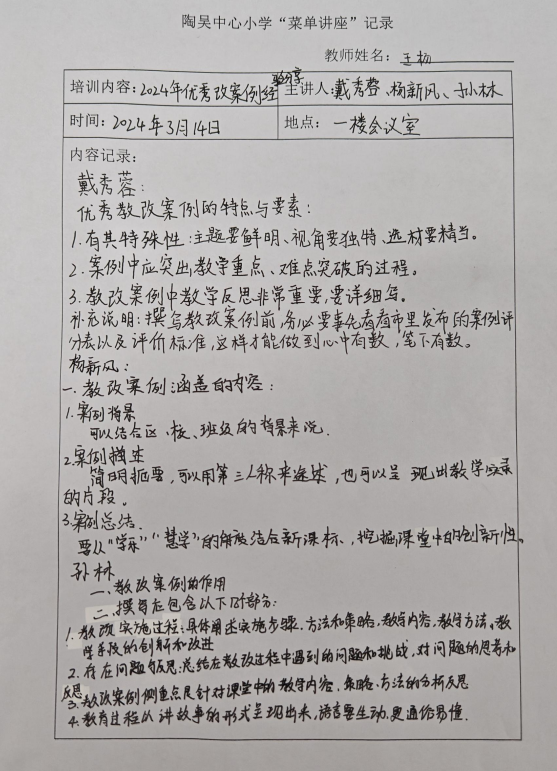 陶吴中心小学“菜单讲座”记录
教师姓名：王杨
培训内容：2024年优秀教改案例经验分享
主讲人：戴秀蓉、杨新风、孙林
时间：2024年3月14日
地点：一楼会议室
内容记录：
戴秀蓉：
优秀教改案例的特点与要素：
1.有其特殊性：主题要鲜明、视角要独特、选材要精当。
2.案例中应突出教学重点、难点突破的过程。
3.教改案例中教学反思非常重要，要详细写。
补充说明：撰写教改案例前，务必要事先看看市里发布的案例评
分表以及评价标准，这样才能做到心中有数，笔下有数。
杨新风：
一、教改案例涵盖的内容：
1.案例背景
可以结合区、校、班级的背景来说．
2.案例描述
简明扼要，可以用第三人称来述，也可以呈现出教学实录
的片段。
3.案例总结．
要从“学乐”“慧学”的角度结合新课标、挖掘课堂中的创新性。
孙林
一、教改案例的作用
二、撰写应包含以下几个部分：
1.教改实施过程：具体阐述实施步骤、方法和策略，教学内容，教学方法，教
学手段的创新和改进
2.存在问题与反思：总结在教改过程中遇到的问题和挑战，对问题的思考和
反思
3.教改案例侧重点是针对课堂中的教学内容、策略、方法的分析反思
4.教育过程以讲故事的形式呈现出来，语言要生动，更通俗易懂．